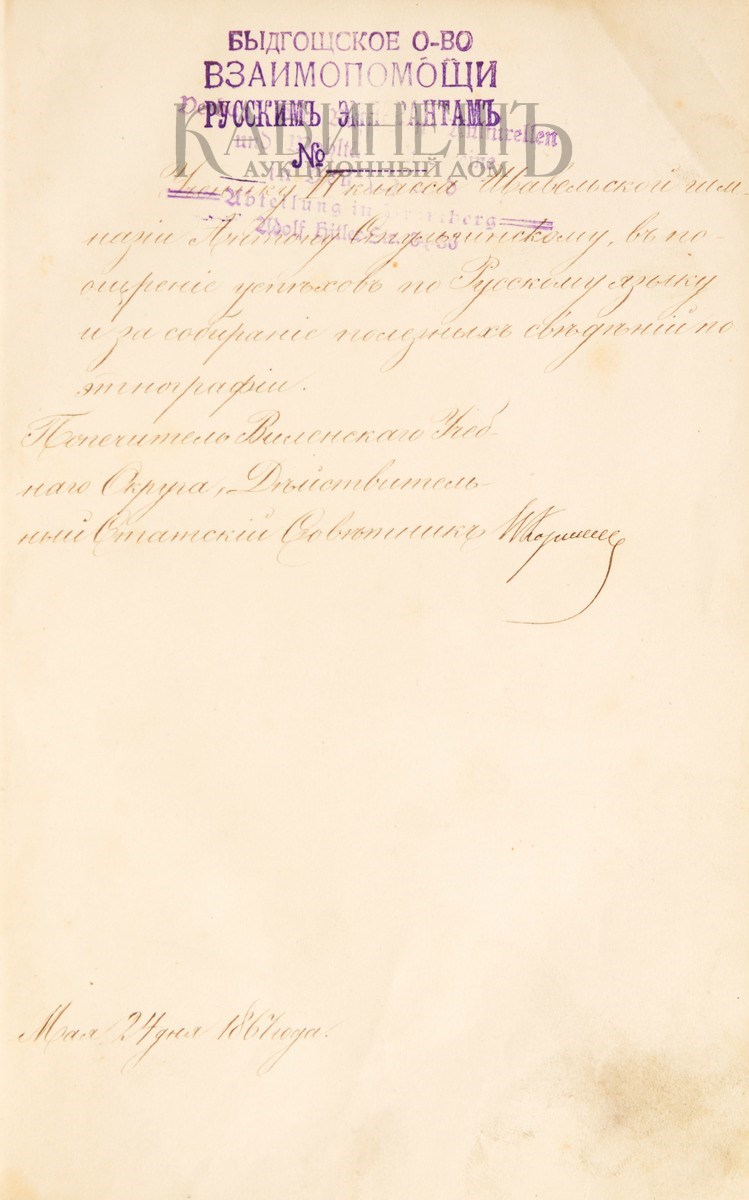 БЫДГОЩСКОЕ О-ВО
ВЗАИМОПОМОЩИ
РУССКИМЪ ЭМИГРАНТАМЪ
КАБИНЕТЪ
АУКЦИОННЫЙ ДОМ
№
kulturellen
und
Abteilung in Bromberg
Adolf Hitler Str.
Ученику класса Шавельской гим-
назіи Антону въ по-
ощреніе успѣховъ по Русскому языку
и за собираніе полезныхъ свѣдѣній по
этнографіи.
Попечитель Виленскаго Учеб-
наго Округа, Дѣйствитель-
ный Статскій Совѣтникъ
Мая 24 дня 1867 года.